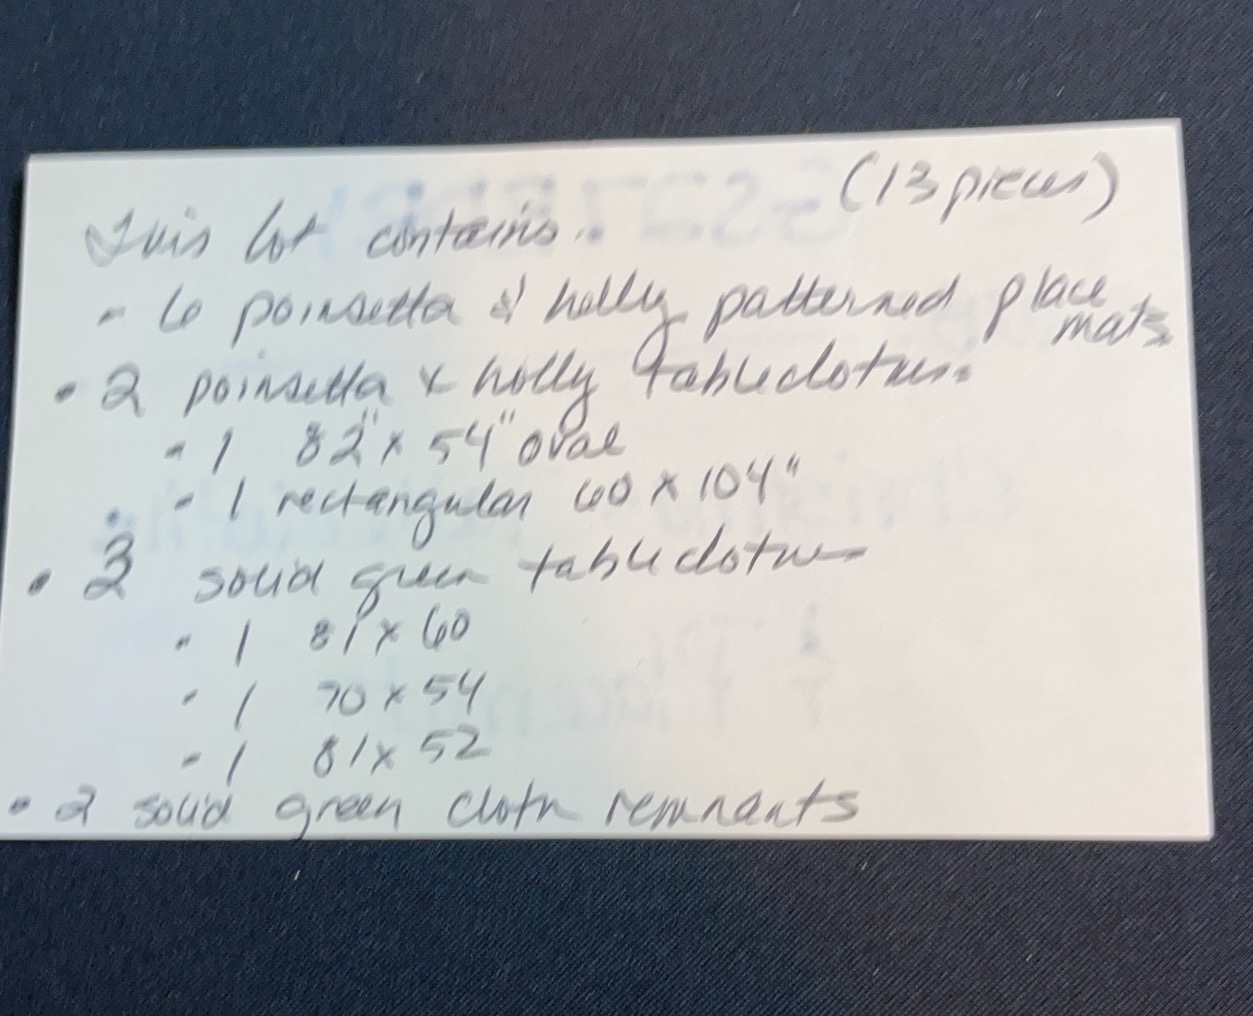 (13 pieces)
This lot contains.
- 6 poinsetta & holly patterned place mats
• 2 poinsetta & holly tablecloths
- 1 82" x 54" oval
- 1 rectangular 60 x 104"
• 3 solid green tablecloths
- 1 81 x 60
- 1 70 x 54
- 1 81 x 52
• 2 solid green cloth remnants